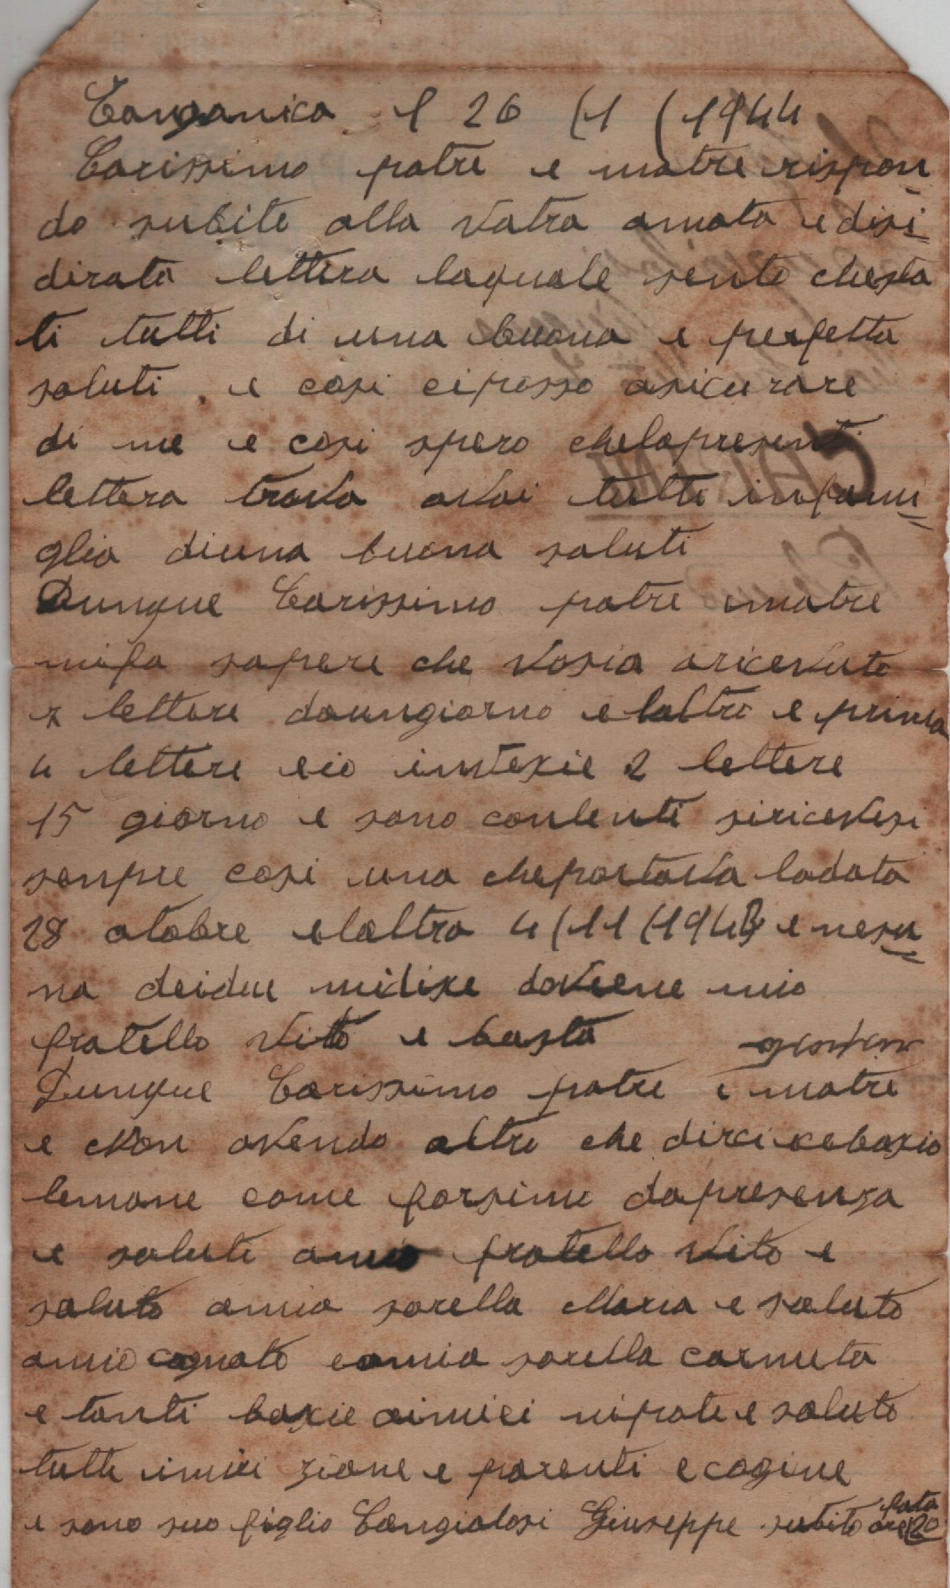 Tanganica l 26/1/1944
Carissimo patre e matre rispon
do subito alla vatra amata e disi
dirata lettera laquale sento chesta
ti tutti di una buona e perfetta
saluti, e cosi ciposso asicurare
di me e cosi spero chelapresenti
lettera trova avoi tutti infami
glia diuna buona saluti
Dunque Carissimo patre ematre
mifa sapere che vosia aricevuto
lettere daungiorno elaltro e prima
4 lettere eio 2 lettere
15 giorno e sono contenti siricevesi
senpre cosi una cheportava ladata
28 otobre elaltra 4/11/1943 e nesu
na deidue midixe doveene mio
fratello Vito e basta
Dunque Carissimo patre e matre
e Non avendo altro che dirci
lemane come forsimu dapresenza
e saluti amio fratello Vito e
saluto amia sorella Maria e saluto
amio cognato eamia sorella carmeta
e tanti baxie aimiei nipote e saluto
tutti imiei zione e parenti e cogine
e sono suo figlio Cangialosi Giuseppe subito fata ore 20